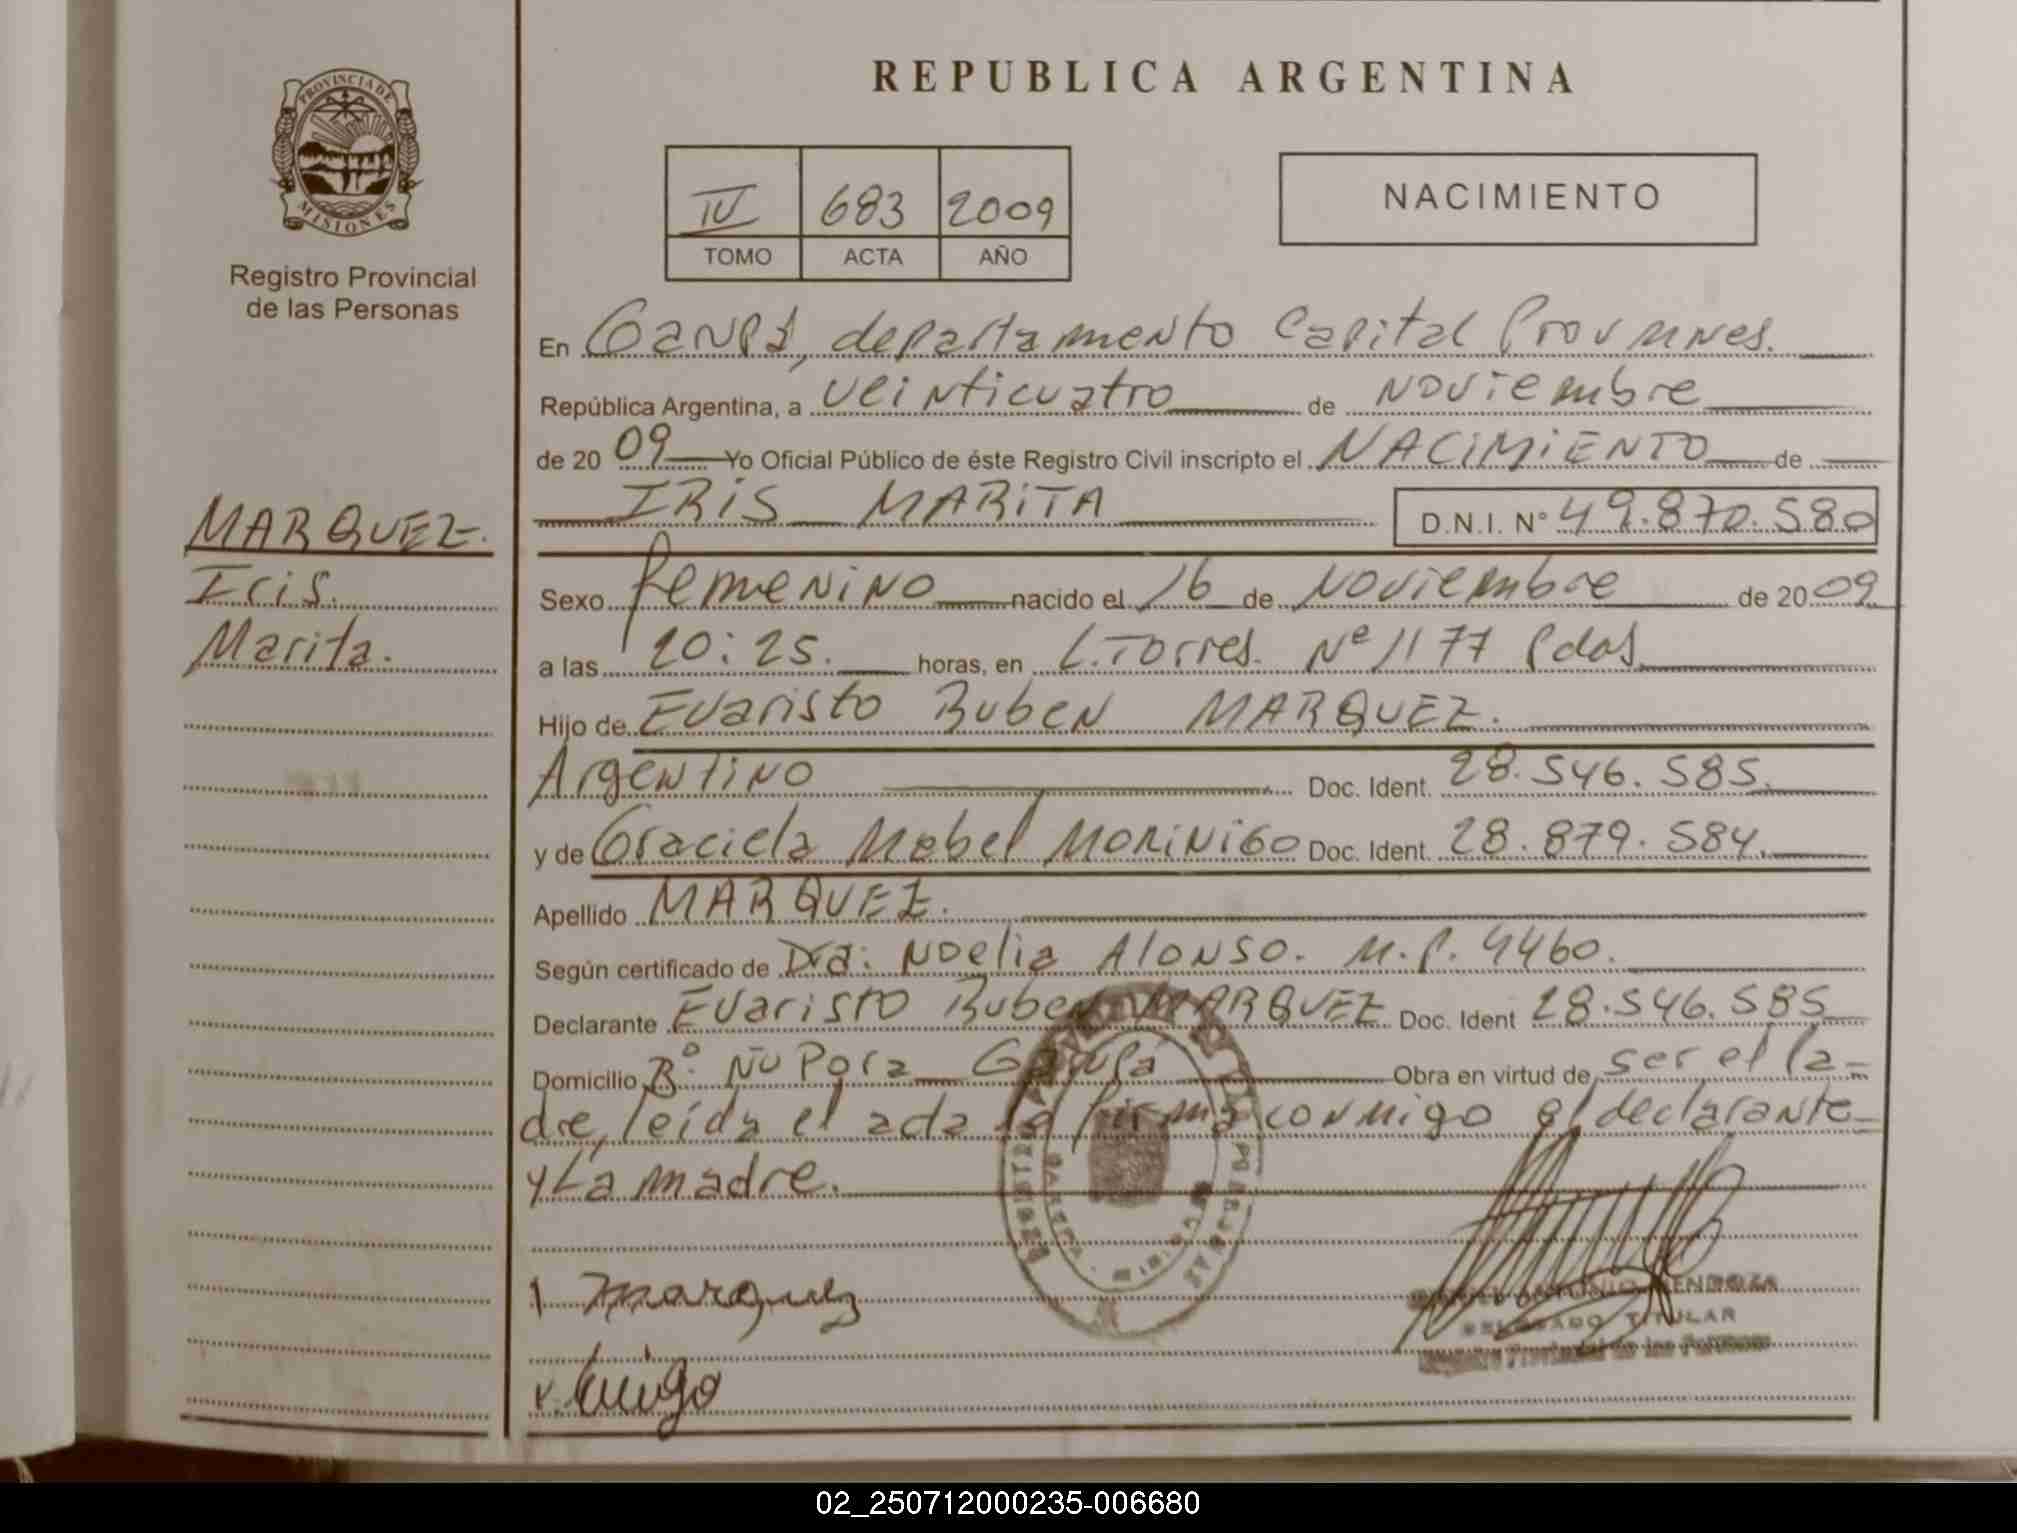 PROVINCIA DE
MISIONES
Registro Provincial
de las Personas
MARQUEZ.
Iris.
Marita.
REPUBLICA ARGENTINA
IV 683 2009
TOMO ACTA AÑO
NACIMIENTO
En Garupá, departamento Capital Prov Mnes.
República Argentina, a veinticuatro de Noviembre
de 2009 Yo Oficial Público de éste Registro Civil inscripto el NACIMIENTO de
IRIS MARITA D.N.I. Nº 49.870.580
Sexo femenino nacido el 16 de Noviembre de 2009
a las 20:25. horas, en L. Torres. Nº 1177 Pdas
Hijo de Evaristo Ruben MARQUEZ.
Argentino Doc. Ident. 28.546.585.
y de Graciela Mabel MORINIGO Doc. Ident. 28.879.584.
Apellido MARQUEZ.
Según certificado de Dra: Noelia Alonso. M.P. 4460.
Declarante Evaristo Ruben MARQUEZ Doc. Ident 28.546.585
Domicilio Bº Ñu Pora Garupá Obra en virtud de ser el Pa-
dre, leída el acta la firma conmigo el declarante
y La madre.
Marquez
ANTONIO MENDOZA
DELEGADO TITULAR
Registro Provincial de las Personas
02_250712000235-006680